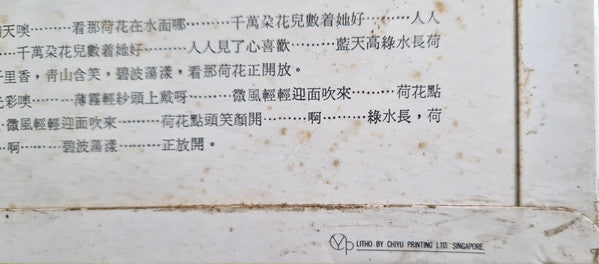 天噢………看那荷花在水面哪………千萬朵花兒數着她好………人人
…千萬朵花兒數着她好………人人見了心喜歡………藍天高綠水長荷
千里香，青山含笑，碧波蕩漾，看那荷花正開放。
光彩噢………薄霧輕紗頭上戴呀………微風輕輕迎面吹來………荷花點
…微風輕輕迎面吹來………荷花點頭笑顏開………啊………綠水長，荷
…啊………碧波蕩漾………正放開。
Yp LITHO BY CHIYU PRINTING LTD. SINGAPORE.